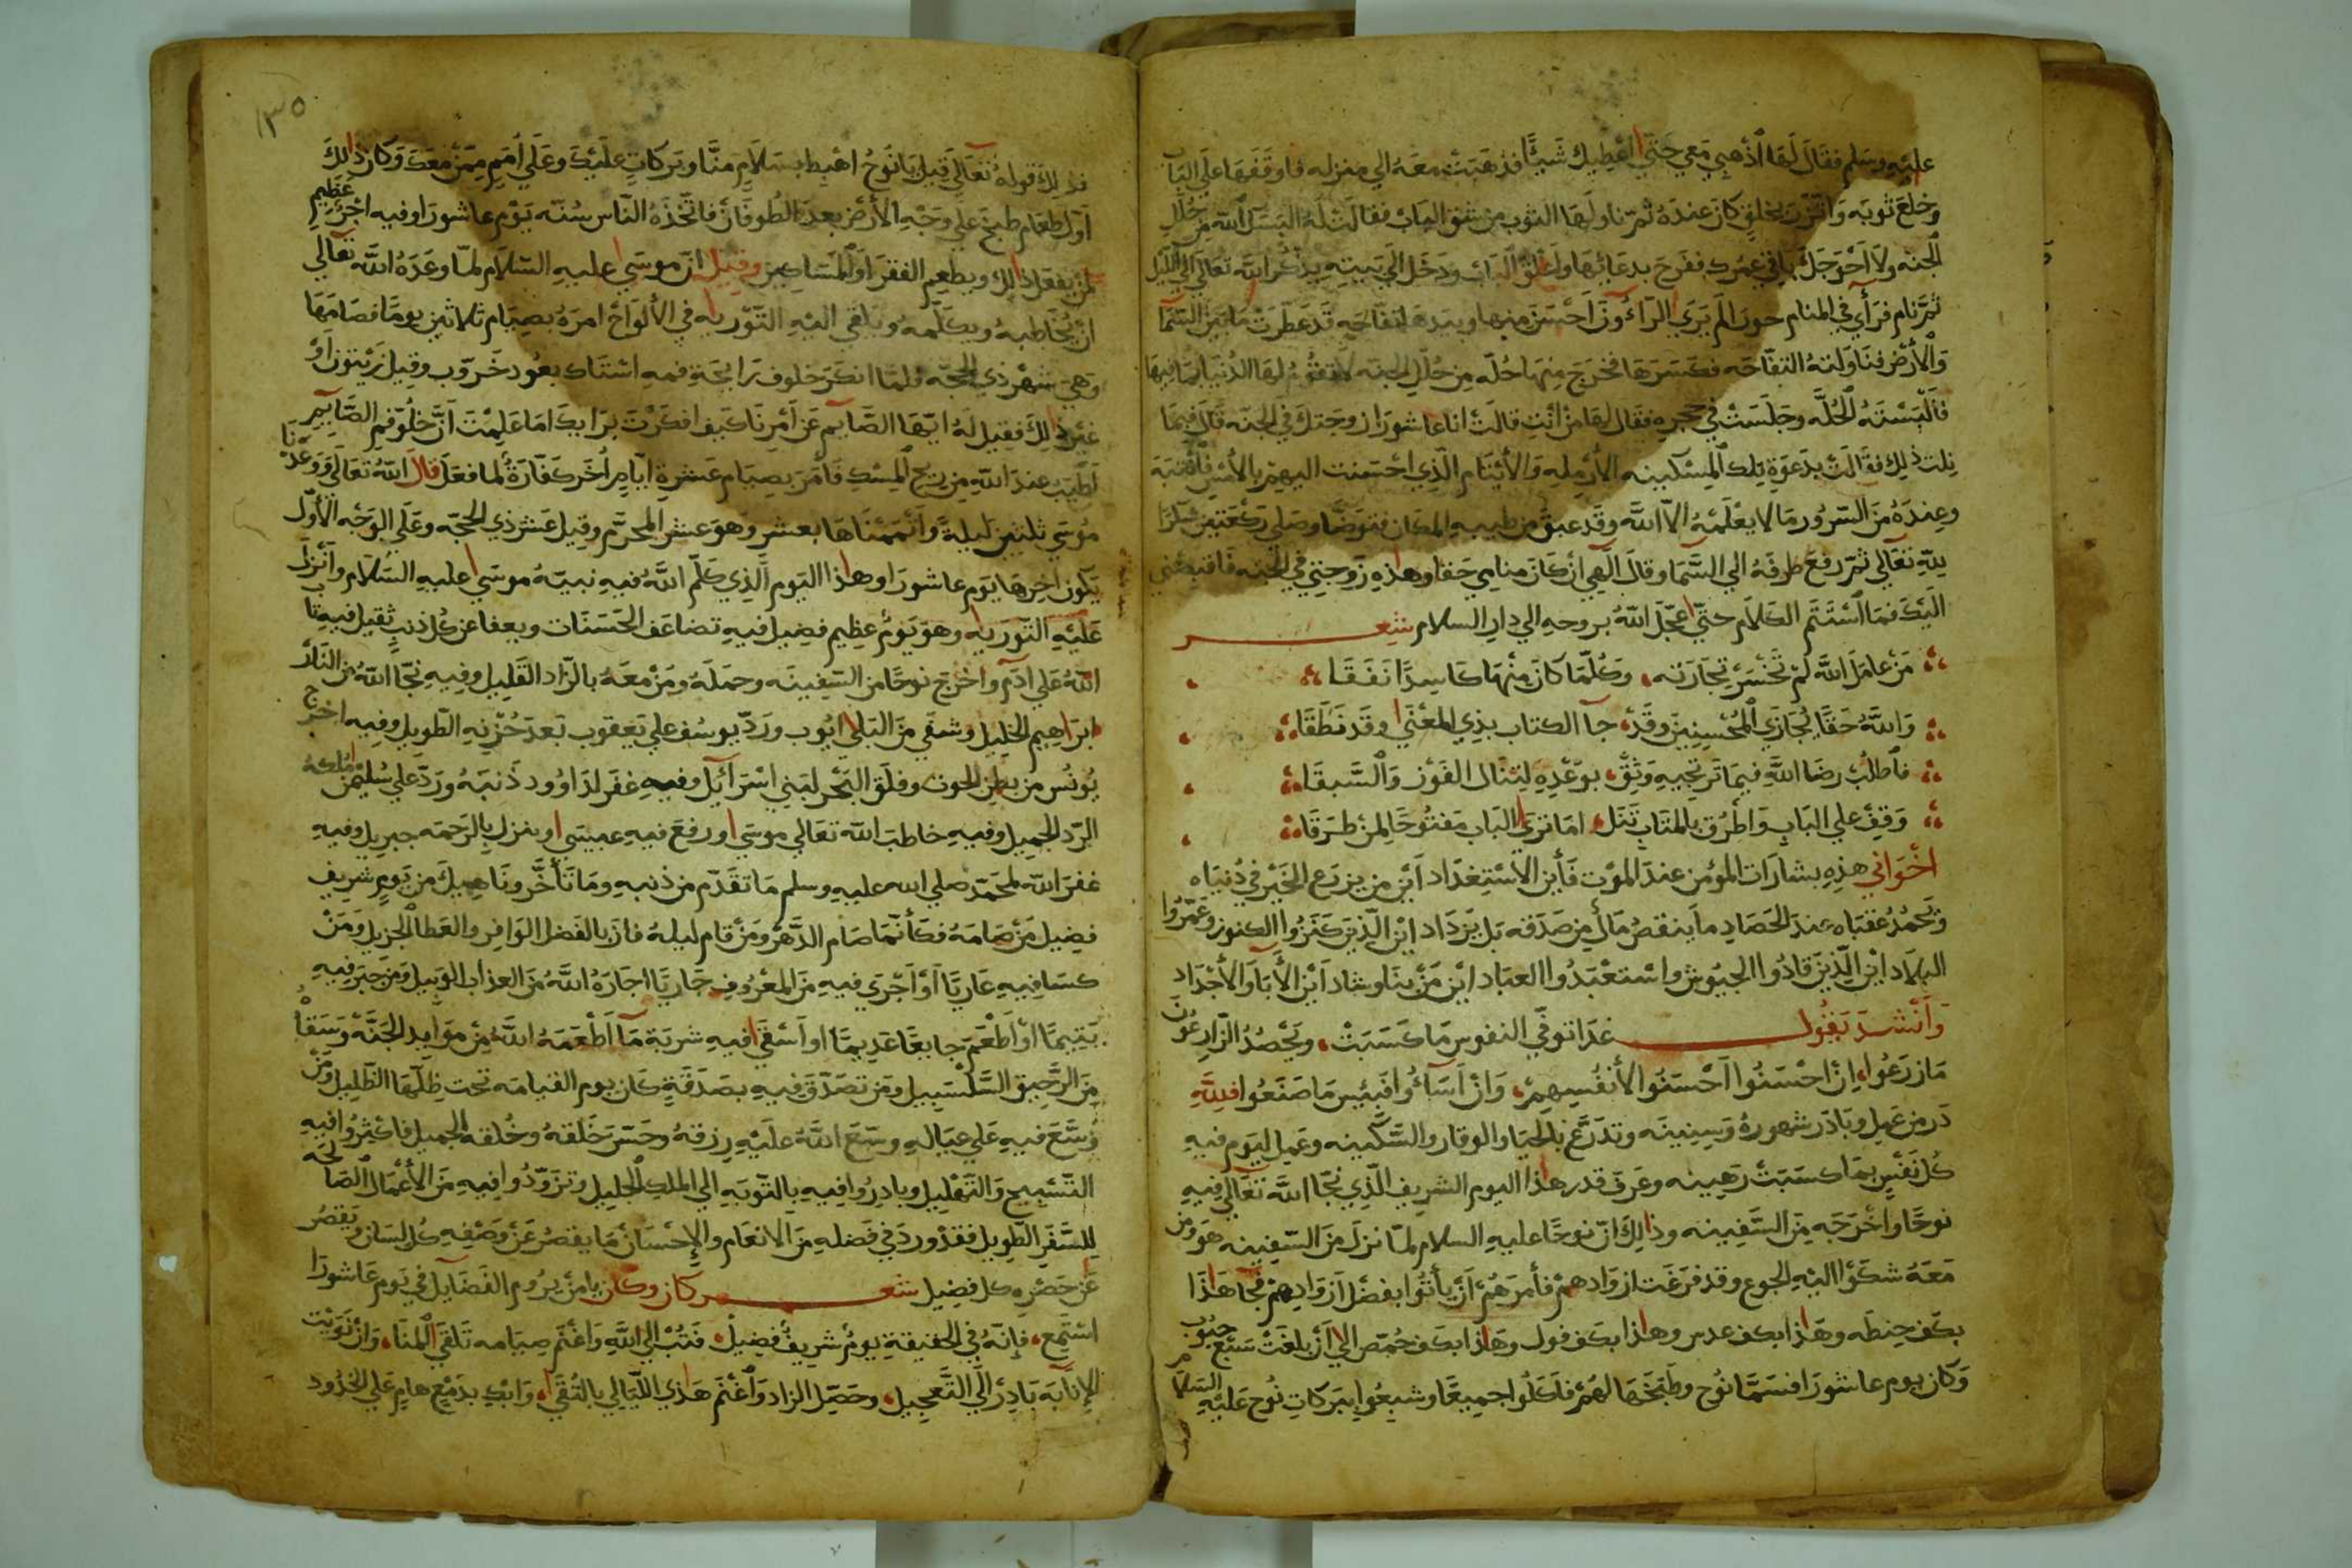 عليه وسلم فقال لها اذهبي معي حتى اعطيك شيئا فذهبت معه الي منزله فاوقفها علي الباب
وخلع ثوبه واتزر بخلق كان عنده ثم ناولها الثوب من شق الباب فقالت له البسك الله من حلل
الجنه ولا احوجك باقي عمرك ففرح بدعائها واغلق الباب ودخل الي بيته يذكر الله تعالي الي الليل
ثم نام فرأي في المنام حورا لم يري الراؤون احسن منها وبيدها تفاحه قد عطرت ما بين السما
والأرض فناولته التفاحه فكسرها فخرج منها حله من حلل الجنه لا تقوم لها الدنيا بما فيها
فألبسته الحله وجلست في حجره فقال لها من أنت قالت انا عاشورا زوجتك في الجنه قال فبما
نلت ذلك فقالت بدعوة تلك المسكينه الأرمله والأيتام الذي احسنت اليهم بالأمس فانتبه
وعنده من السرور ما لا يعلمه الا الله وقد عبق من طيبه المكان فتوضا وصلي ركعتين شكرا
لله تعالي ثم رفع طرفه الي السما وقال الهي ان كان منامي حقا وهذه زوجتي في الجنه فاقبضني
اليك فما استتم الكلام حتى عجل الله بروحه الي دار السلام شعر
من عامل الله لم تخسر تجارته، وكلما كان منها كاسدا نفقا
والله حقا يجازي المحسنين وقد، جا الكتاب بذي المعنى وقد نطقا
فاطلب رضا الله فيما ترتجيه وثق، بوعده لتنال الفوز والسبقا
وقف علي الباب واطرق بالمتاب تنل، اما تري الباب مفتوحا لمن طرقا
اخواني هذه بشارات المؤمن عند الموت فأين الاستعداد أين من يزرع الخير في دنياه
وتحمد عقباه عند الحصاد ما ينقص مال من صدقه بل يزداد اين الذين كنزوا الكنوز وعمروا
البلاد اين الذين قادوا الجيوش واستعبدوا العباد اين من بنا وشاد أين الأبا والأجداد
وأنشد يقول غدا توفي النفوس ما كسبت، ويحصد الزارعون
ما زرعوا، إن احسنوا احسنوا لأنفسهم، وان أساؤا فبئس ما صنعوا فلله
در من عمل وبادر شهوره وسنينه وتدرع بالحيا والوقار والسكينه وعمل ليوم فيه
كل نفس بما كسبت رهينه وعرف قدر هذا اليوم الشريف الذي نجا الله تعالي فيه
نوحا واخرجه من السفينه وذلك ان نوحا عليه السلام لما نزل من السفينه هو ومن
معه شكوا اليه الجوع وقد فرغت ازوادهم فأمرهم أن يأتوا بفضل ازوادهم فجا هذا
بكف حنطه وهذا بكف عدس وهذا بكف فول وهذا بكف حمص الي أن بلغت سبع حبوب
وكان يوم عاشورا فسما نوح وطبخها لهم فأكلوا جميعا وشبعوا ببركات نوح عليه السلام
١٣٥
فذلك قوله تعالي قيل يا نوح اهبط بسلام منا وبركات عليك وعلي أمم ممن معك وكان ذلك
أول طعام طبخ علي وجه الأرض بعد الطوفان فاتخذه الناس سنه يوم عاشورا وفيه اجر عظيم
لمن يفعل ذلك ويطعم الفقرا والمساكين وقيل ان موسى عليه السلام لما وعده الله تعالي
ان يخاطبه ويكلمه ويلقي اليه التورية في الألواح امره بصيام ثلاثين يوما فصامها
وهي شهر ذي الحجه فلما انكر خلوف رايحة فمه استاك بعود خروب وقيل زيتون أو
غير ذلك فقيل له ايها الصايم عن أمرنا كيف افكرت برايك اما علمت أن خلوق فم الصايم
أطيب عند الله من ريح المسك فأمر بصيام عشرة ايام أخر كفارة لما فعل قال الله تعالي ووعدنا
موسي ثلثين ليلة وأتممناها بعشر وهو عشر المحرم وقيل عشر ذي الحجه وعلي الوجه الأول
يكون اخرها يوم عاشورا وهذا اليوم الذي كلم الله فيه نبيه موسى عليه السلام وأنزل
عليه التورية وهو يوم عظيم فضيل فيه تضاعف الحسنات ويعفا عن كل ذنب ثقيل فيه تاب
الله علي آدم واخرج نوحا من السفينه وحمله ومن معه بالزاد القليل وفيه نجا الله من النار
ابراهيم الخليل وشفي من البلا ايوب ورد يوسف علي يعقوب بعد حزنه الطويل وفيه اخرج
يونس من بطن الحوت وفلق البحر لبني اسرائيل وفيه غفر لداوود ذنبه ورد علي سليمن ملكه
الرد الجميل وفيه خاطب الله تعالي موسى ورفع فيه عيسى وينزل بالرحمه جبريل وفيه
غفر الله لمحمد صلي الله عليه وسلم ما تقدم من ذنبه وما تأخر وناهيك من يوم شريف
فضيل من صامه فكأنما صام الدهر ومن قام ليله فاز بالفضل الوافر والعطا الجزيل ومن
كسا فيه عاريا أو أجري فيه من المعروف جاريا اجاره الله من العذاب الوبيل ومن جبر فيه
يتيما أو أطعم جايعا عديما او أسقى فيه شربة ما أطعمه الله من موايد الجنه وسقاه
من الرحيق السلسبيل ومن تصدق فيه بصدقة كان يوم القيامه تحت ظلها الظليل ومن
وسع فيه علي عياله وسع الله عليه رزقه وحسن خلقه وخلقه الجميل فاكثروا فيه
التسبيح والتهليل وبادروا فيه بالتوبه الي الملك الجليل وتزودوا فيه من الأعمال الصالحه
للسفر الطويل فقد ورد في فضله من الانعام والإحسان ما يقصر عن وصفه كل لسان ويقصر
عن حصره كل فضيل شعر كان وكان يا من يروم الفضايل في يوم عاشورا
استمع، فإنه في الحقيقة يوم شريف فضيل، فتب الي الله واغتم صيامه تلقى المنا، وان نويت
الإنابه بادر الي التعجيل، وحصل الزاد واغتنم هذي الليالي بالتقى، وابك بدمع هام علي الخدود